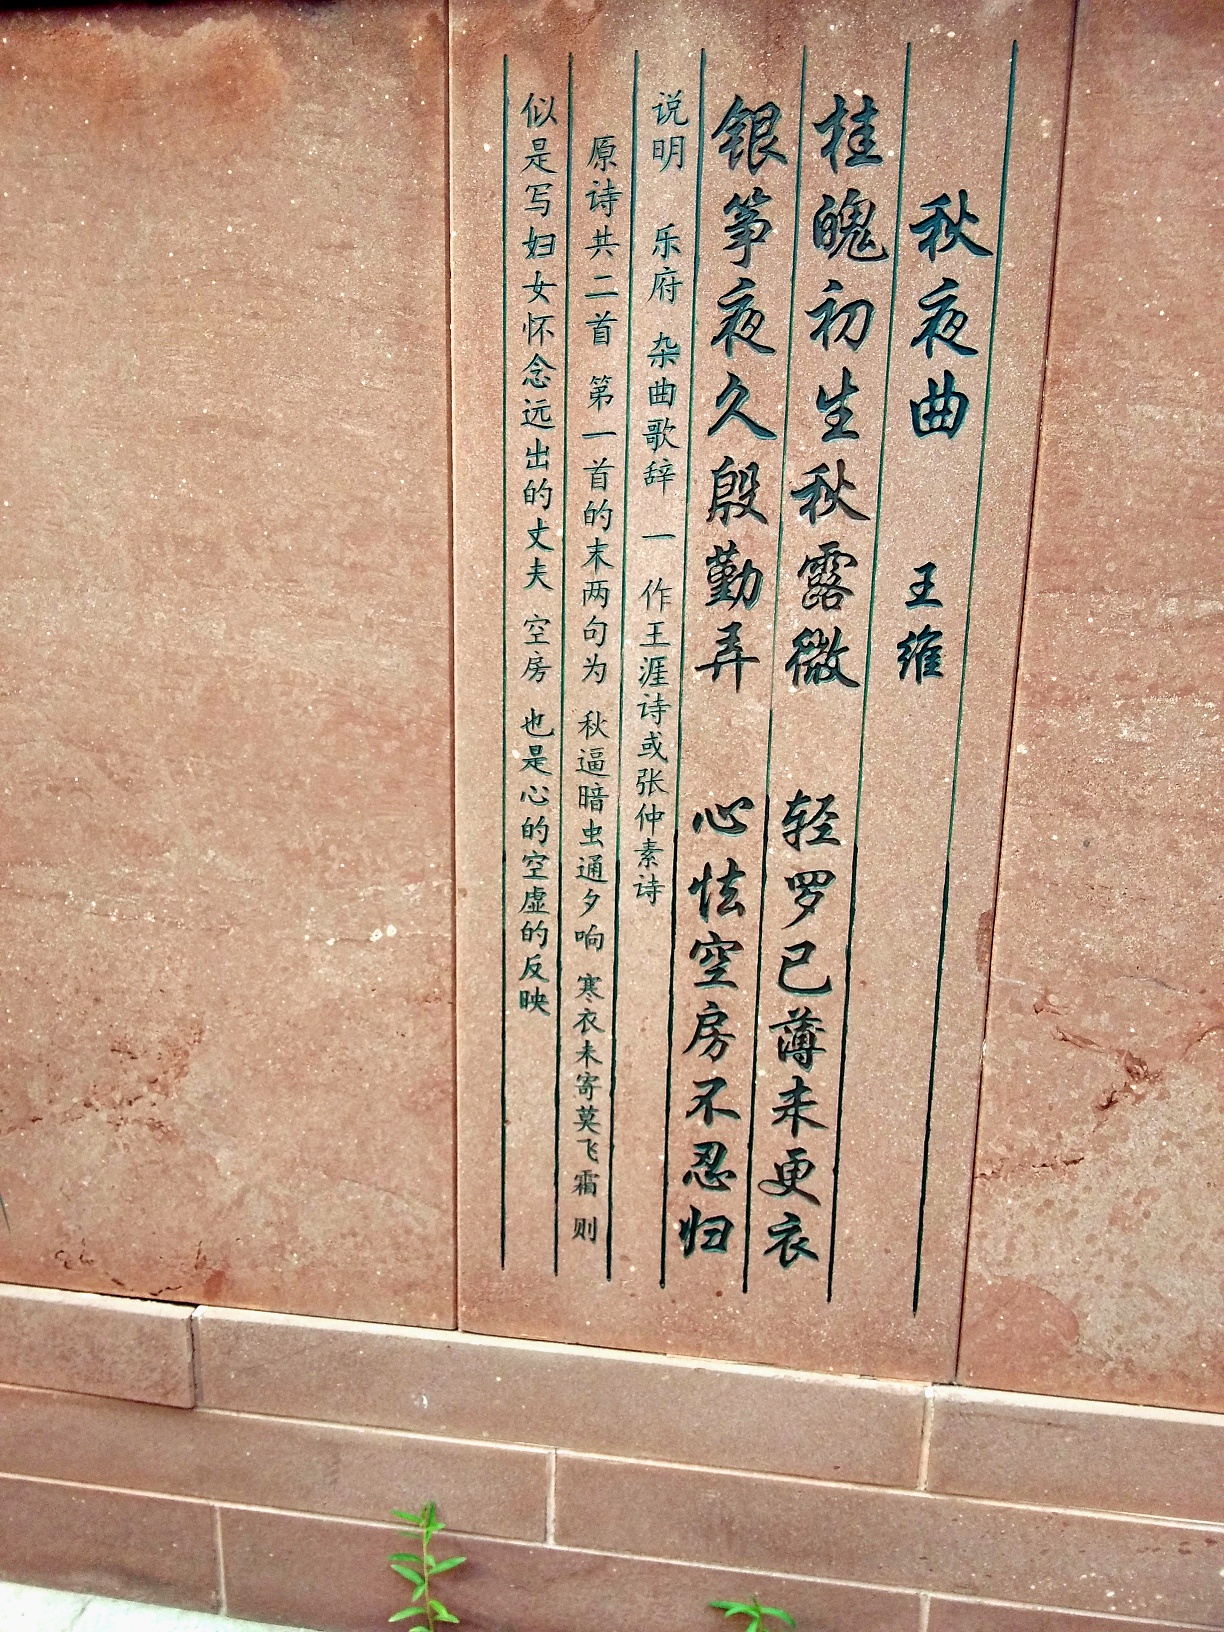 秋夜曲 王维
桂魄初生秋露微 轻罗已薄未更衣
银筝夜久殷勤弄 心怯空房不忍归
说明 乐府 杂曲歌辞 一 作王涯诗或张仲素诗
原诗共二首 第一首的末两句为 秋逼暗虫通夕响 寒衣未寄莫飞霜 则
似是写妇女怀念远出的丈夫 空房 也是心的空虚的反映